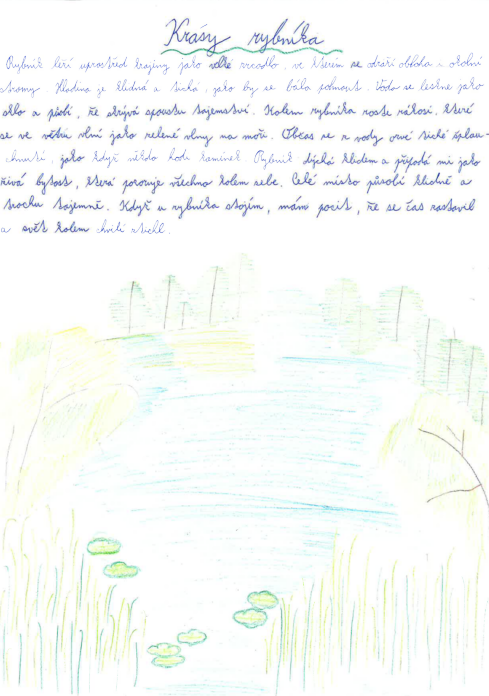 Krásy rybníka
Rybník leží uprostřed krajiny jako velké zrcadlo, ve kterém se odráží obloha i okolní
stromy. Hladina je klidná a tichá, jako by se bála pohnout. Voda se leskne jako
sklo a působí, že skrývá spoustu tajemství. Kolem rybníka roste rákosí, které
se ve větru vlní jako zelené vlny na moři. Občas se z vody ozve tiché šplou-
chnutí, jako když někdo hodí kamínek. Rybník dýchá klidem a připadá mi jako
živá bytost, která pozoruje všechno kolem sebe. Celé místo působí klidně a
trochu tajemně. Když u rybníka stojím, mám pocit, že se čas zastavil
a svět kolem chvíli ztichl.